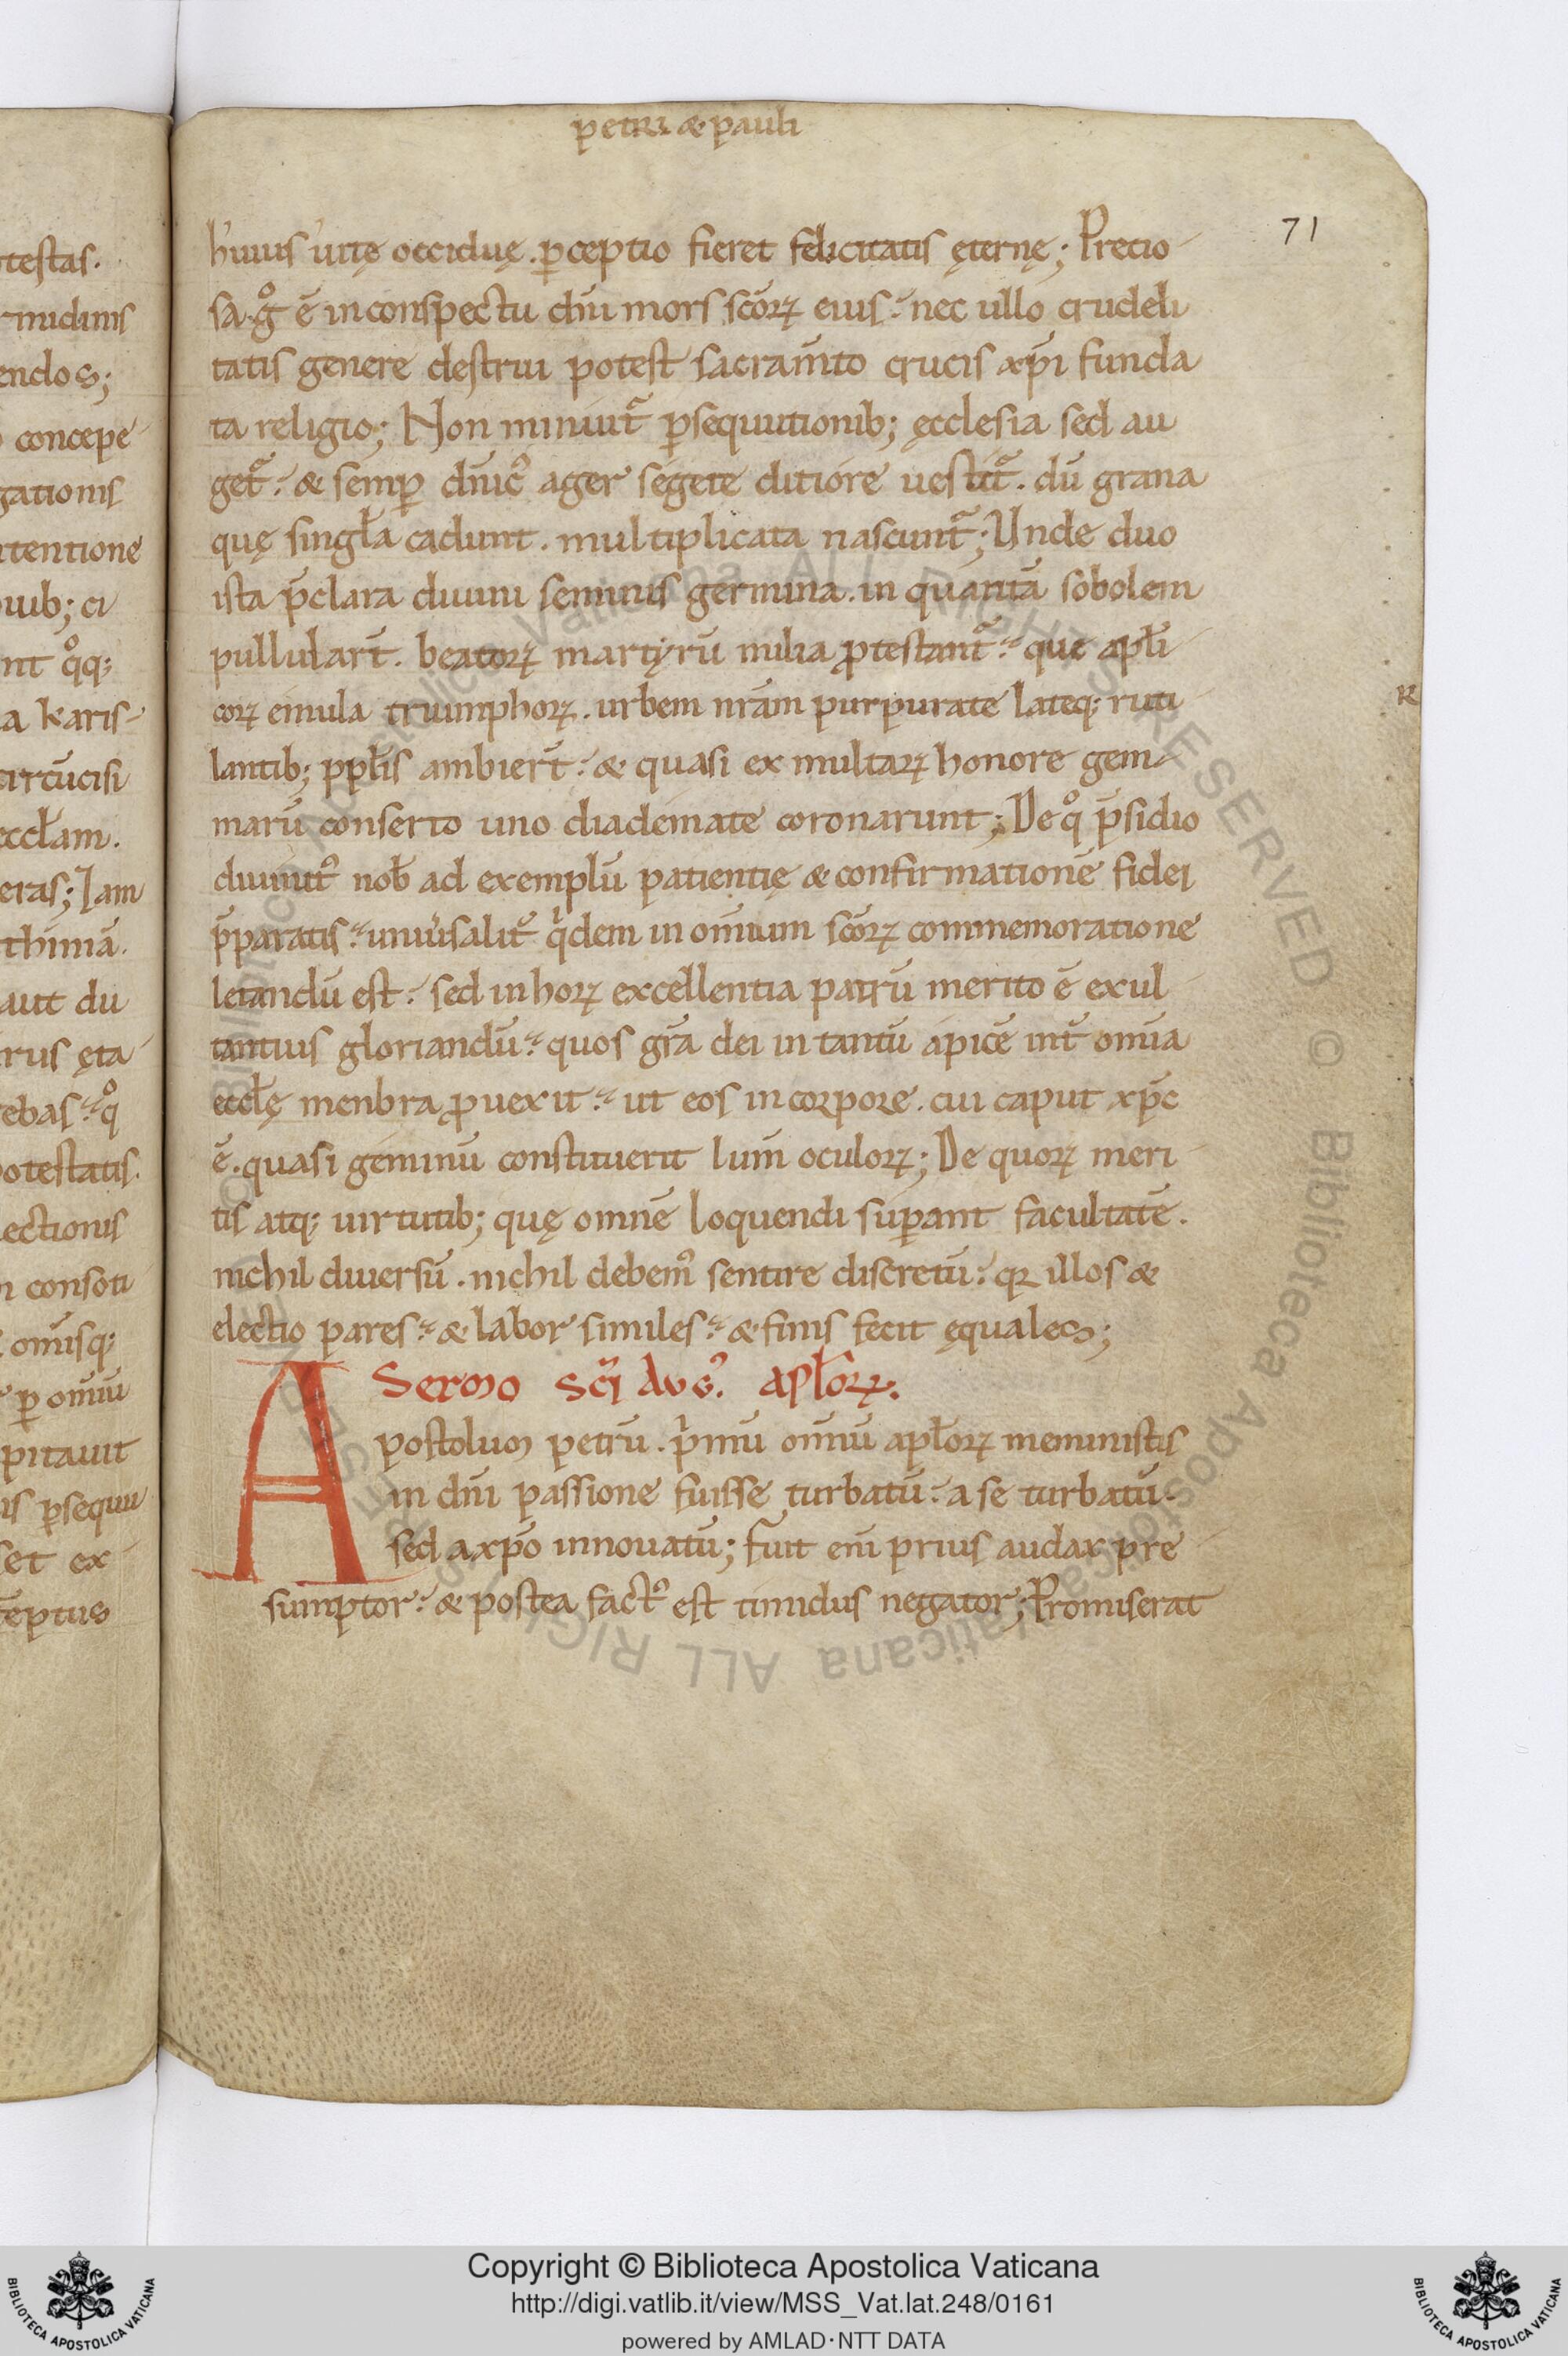 petri & pauli
71
testas.
rmidinis
endos;
concepe
gationis
ntentione
uib; ci
nt qͦq;
a karis-
artūcisi
eccƚam.
eras; Iam
thimā.
aut du
rus ęta
ebas. qͦ
potestatis.
lectionis
n consoti
omīsq;
ꝑ omiū
pitauit
is ꝑsequu
set ex
ceptus
huius uitę occiduę. ꝑceptio fieret felicitatis ęternę; Precio
sa gͦ ē in conspectu dn̄i mors sc̄oꝝ eius. nec ullo crudeli
tatis genere destrui potest sacram̄to crucis xp̄i funda
ta religio; Non minuit᷑ ꝑsequutionib; ęcclesia sed au
get᷑. & semꝑ dn̄ic᾽ ager segete ditiore uestit᷑. dū grana
quę singƚa cadunt. multiplicata nascunt᷑; Unde duo
ista p̄clara diuini seminis germina. in quantā sobolem
pullular̄t. beatoꝝ martyrū milia ꝓtestant᷑. que apƚi
coꝝ emula triumphoꝝ. urbem nr̄am purpurate lateq; ruti
lantib; ppƚis ambier̄t. & quasi ex multaꝝ honore gem
marū conserto uno diademate coronarunt; De qͦ p̄sidio
diuinit᾽ nob̄ ad exemplū patientię & confirmationē fidei
p̄paratis. uniu͛salit᾽ qͥdem in omium sc̄oꝝ commemoratione
letandū est. sed in hoꝝ excellentia patrū merito ē exul
tantius gloriandū. quos gr̄a dei in tantū apicē int̄ omīa
eccƚę menbra ꝓuexit. ut eos in corpore. cui caput xp̄c
ē. quasi geminū constituerit lum̄ oculoꝝ; De quoꝝ meri
tis atq; uirtutib; quę omnē loquendi suꝑant facultatē.
nichil diuersū. nichil debem᾽ sentire discretū. qꝛ illos &
electio pares. & labor similes. & finis fecit ęquales;
Sermo sc̄i Aug᾽. apƚoꝝ.
Apostolum petrū. pͥmū omiū apƚoꝝ meministis
in dn̄i passione fuisse turbatū. a se turbatū.
sed a xp̄o innouatū; fuit eni͂ prius audax pre
sumptor. & postea fact᾽ est timidus negator; Promiserat
R
Copyright © Biblioteca Apostolica Vaticana
http://digi.vatlib.it/view/MSS_Vat.lat.248/0161
powered by AMLAD·NTT DATA
BIBLIOTECA APOSTOLICA VATICANA
BIBLIOTECA APOSTOLICA VATICANA
© Biblioteca Apostolica Vaticana ALL RIGHTS RESERVED